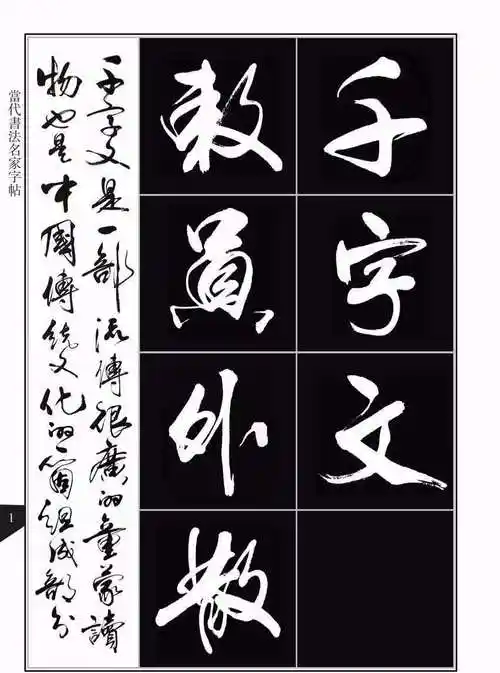 千字文
敕員外散
千字文是一部流傳很廣的童蒙讀
物也是中國傳統文化的一箇組成部分
當代書法名家字帖
1